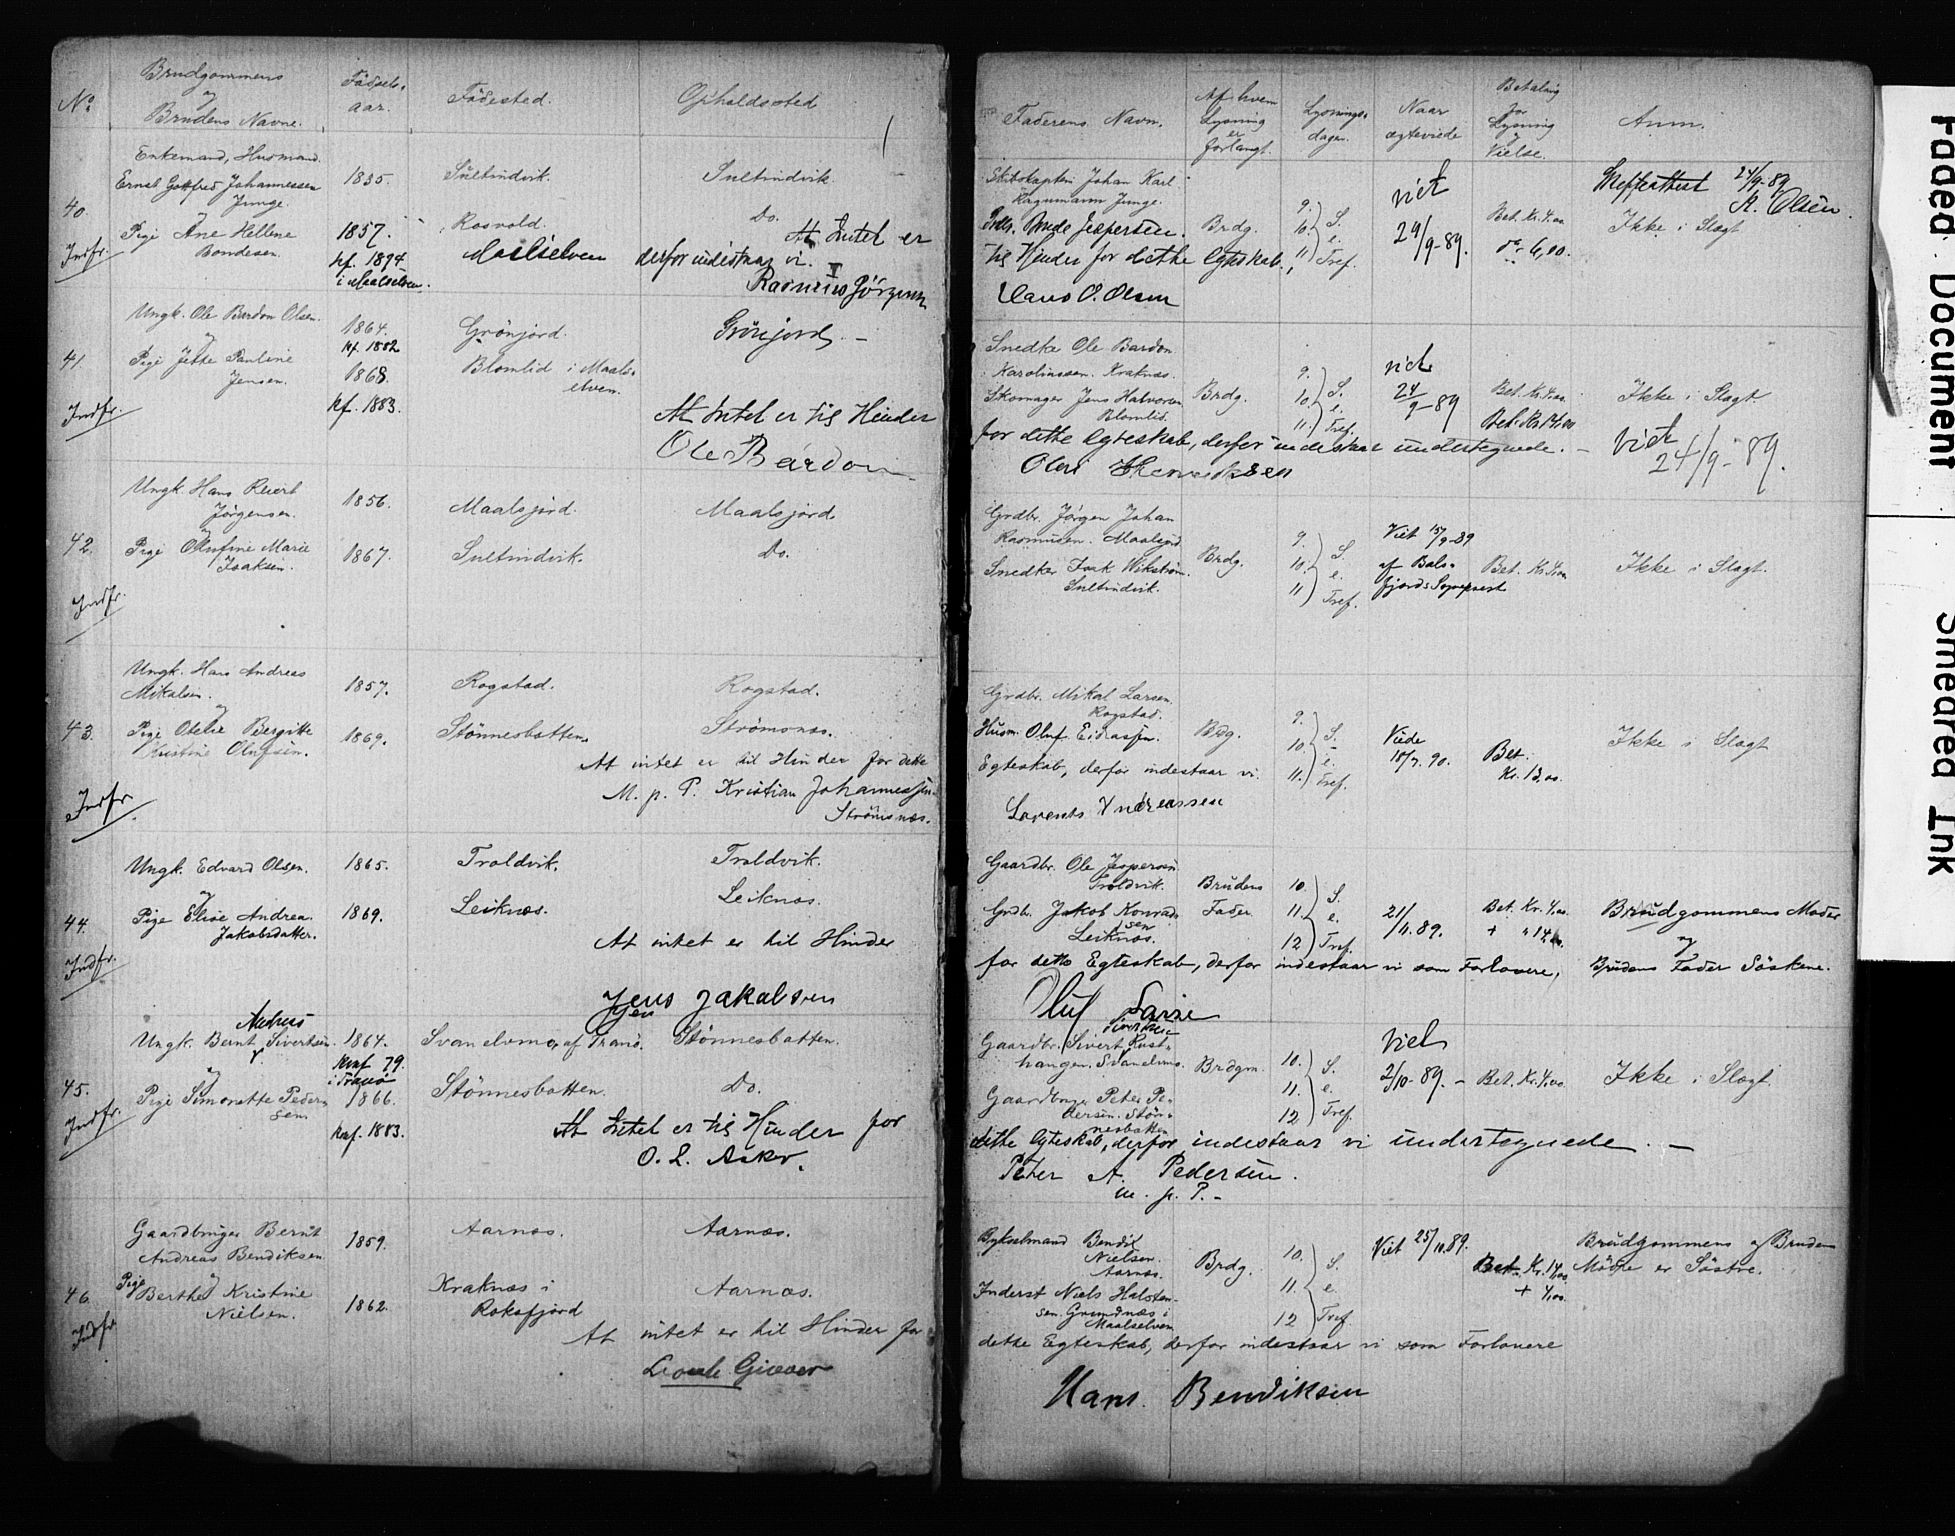 No.
Brudgommens
og
Brudens Navne.
Fødsels-
aar.
Fødested.
Opholdssted
Faderens Navn.
Af hvem
Lysning
er
forlangt.
Lysnings-
dagen.
Naar
ægteviede
Betaling
for
Lysning
Vielse.
Anm.
40.
Indfr.
Enkemand, Husmand.
Ernst Gottfred Johannessen
Junge.
og
Pige Ane Hellene
Bondesen.
1835.
1857.
kf. 1874
i Maalselven.
Sultindvik.
Rosvold.
Maalselven
Sultindvik
Do.
At Intet er
derfor indestaar vi.
Rasmus Jörgensen
Skibskaptein Johan Karl
Junge.
Jespersen.
til Hinder for dette Egteskab,
Hans O. Olsen
Brdg.
9.
10.
11.
S.
e.
Tref.
viet
24/9-89.
Bet. Kr. 4,00
24/9-89
A. Olsen.
Ikke i Slægt
41.
Indfr.
Ungk. Ole Bardon Olsen.
og
Pige Jette Pauline
Jensen.
1864.
kf. 1882
1868.
kf. 1883.
Grönjord.
Blomlid i Maals-
elven.
Grönjord. -
At Intet er til Hinder
Ole Bardon
Snedker Ole Bardon
Karolinssen. Kraknæs.
Skomager Jens Halvorsen
Blomlid.
for dette Egteskab, derfor indestaar undertegnede. -
Brdg.
9.
10.
11.
S.
e.
Tref.
viet
24/9-89
Bet. Kr. 4,00
Bet. Kr. 14,00
Ikke i Slægt
Viet
24/9-89.
42.
Indfr.
Ungk. Hans Reiert
Jørgensen.
og
Pige Olufine Marie
Isaksen.
1856.
1867.
Maalsjord.
Sultindvik.
Maalsjord
Do.
Grdbr. Jørgen Johan
Rasmussen. Maalsjord
Snedker Isak Wikström.
Sultindvik.
Brdg.
9.
10.
11.
S.
e.
Tref.
Viet 15/9-89
af Bals-
fjords Sognepræst
Bet. Kr. 4,00
Ikke i Slægt.
43.
Indfr.
Ungk. Hans Andreas
Mikalsen.
og
Pige Otelie Bergitte
Kristine Olufsen.
1857.
1869.
Rogstad.
Stönnesbotten.
Rogstad.
Strömsnæs.
At intet er til Hinder for dette
M. p. P. Kristian Johannessen
Strömsnæs.
Grdbr. Mikal Larsen
Rogstad.
Husm. Oluf Eidiassen.
Egteskab, derfor indestaar vi.
Lorents Andreassen
Bdg.
9.
10.
11.
S.
e.
Tref.
Viede
18/7. 90.
Bet.
Kr. 13,00.
Ikke i Slægt
44.
Indfr.
Ungk. Edvard Olsen.
og
Pige Elise Andrea
Jakobsdatter.
1865.
1869.
Troldvik.
Leiknæs.
Troldvik.
Leiknæs.
At intet er til Hinder
Jens Jakobsen
Gaardbr. Ole Jespersen
Troldvik.
Grdb. Jakob Konrad-
sen
Leiknæs.
for dette Egteskab, derfor indestaar vi som Forlovere,
Oluf
Brudens
Fader
10.
11.
12
S.
e.
Tref.
21/11.89.
Bet. Kr. 4,00
+ " 14,00
Brudgommens Moder
og
Brudens Fader Söskene.
45.
Indfr.
Andreas
Ungk. Bernt Sivertsen.
og
Pige Simonette Peder-
sen.
1864.
Konf 79.
i Tranö
1866.
Konf. 1883.
Svanelvmo, af Tranö.
Stönnesbotten.
Stönnesbotten.
Do.
At Intet er til Hinder for
O. L. Asker.
Gaardbr. Sivert
Svanelvmo.
Gaardbruger Peter Pe-
dersen. Stön-
nesbotten
dette Egteskab, derfor indestaar vi undertegnede. -
Peter A. Pedersen.
m. p. P. -
Brdgm.
10.
11.
12
S.
e.
Tref.
Viet
2/10-89. -
Bet. Kr. 4,00
Ikke i Slægt.
46.
Indfr
Gaardbruger Bernt
Andreas Bendiksen
og
Pige Berthe Kristine
Nielsen.
1859.
1862.
Aarnæs.
Kraknæs i
Roksfjord
Aarnæs.
Aarnæs.
At intet er til Hinder for
Giæver
Bykselmand Bendik
Nielsen.
Aarnæs.
Inderst Niels Halsten-
sen. Grundnæs i
Maalselven
dette Egteskab, derfor indestaar vi som Forlovere
Hans Bendiksen
Brdg.
10.
11.
12
S.
e.
Tref
Viet 25/10.89.
Bet. Kr. 14,00
+ 4,00.
Brudgommens og Brudens
Mödre er Söstre.
Faded Document
Smeared Ink